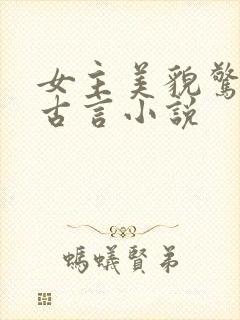 女主美貌驚
古言小說
螞蟻賢弟